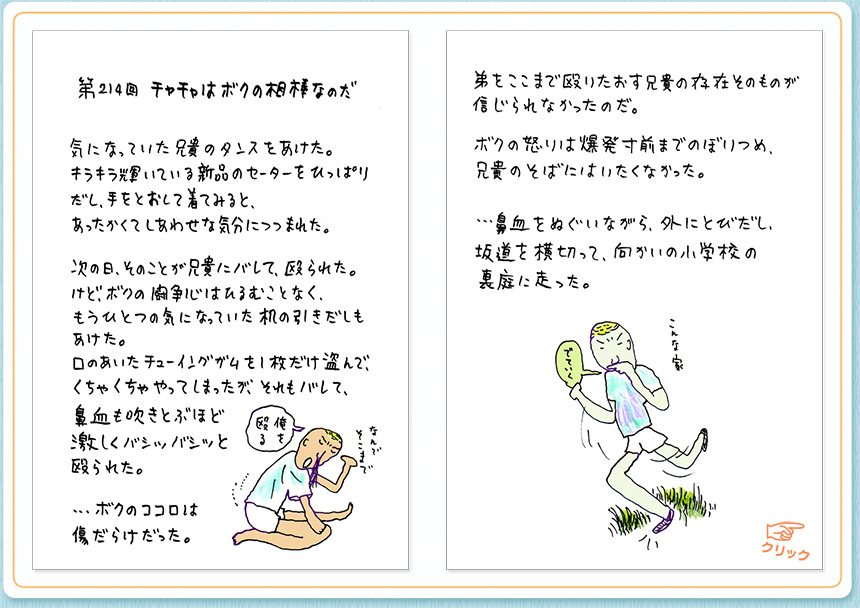 第214回 チャチャはボクの相棒なのだ
気になっていた兄貴のタンスをあけた。
キラキラ輝いている新品のセーターをひっぱり
だし、手をとおして着てみると、
あったかくてしあわせな気分につつまれた。
次の日、そのことが兄貴にバレて、殴られた。
けど、ボクの闘争心はひるむことなく、
もうひとつの気になっていた机の引きだしも
あけた。
口のあいたチューイングガムを1枚だけ盗んで、
くちゃくちゃやってしまったが、それもバレて、
鼻血も吹きとぶほど
激しくバシッバシッと
殴られた。
…ボクのココロは
傷だらけだった。
俺を
殴る
なんで
そこまで
弟をここまで殴りたおす兄貴の存在そのものが
信じられなかったのだ。
ボクの怒りは爆発寸前までのぼりつめ、
兄貴のそばにはいたくなかった。
…鼻血をぬぐいながら、外にとびだし、
坂道を横切って、向かいの小学校の
裏庭に走った。
こんな家
でていく
クリック